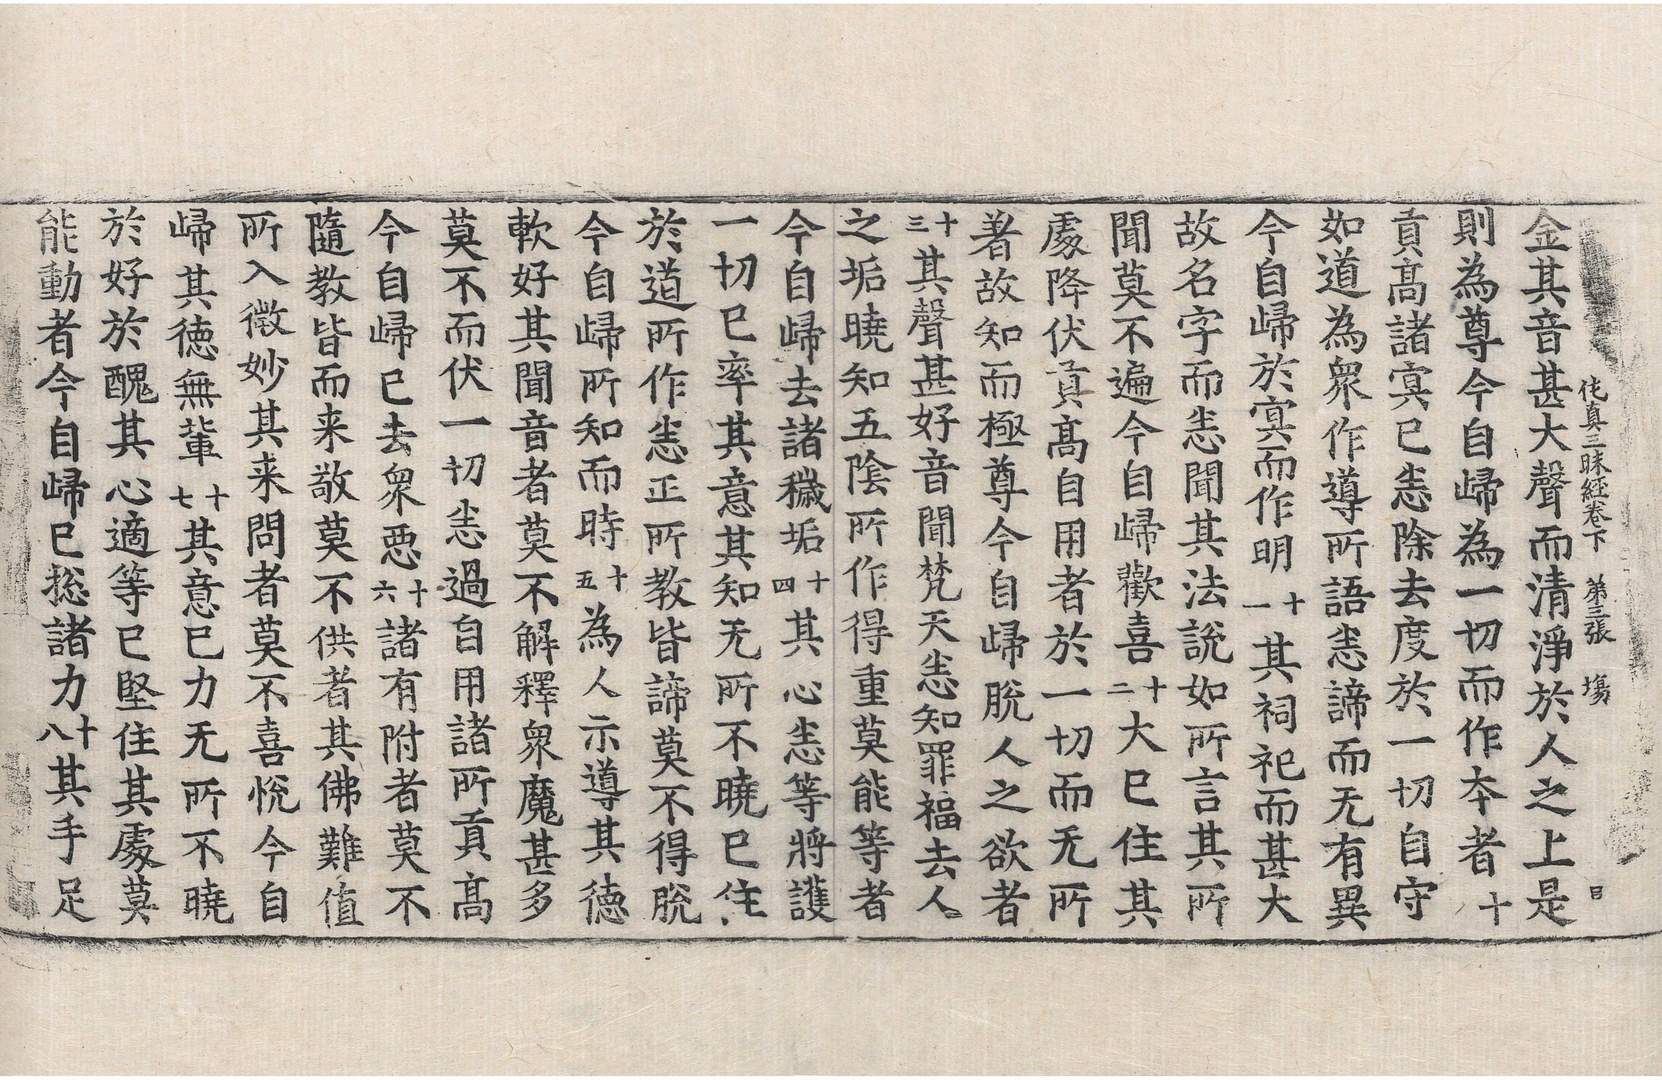 伅真三昧經卷下 第三張 塲
金其音甚大聲而清淨於人之上是
則為尊今自歸為一切而作夲者十
貢高諸㝠已悉除去度於一切自守
如道為衆作導所語悉諦而无有異
今自歸於㝠而作明十一其祠祀而甚大
故名字而悉聞其法說如所言其所
聞莫不遍今自歸歡喜十二大已住其
處降伏貢高自用者於一切而无所
著故知而極尊今自歸脫人之欲者
十三其聲甚好音聞梵天悉知罪福去人
之垢曉知五陰所作得重莫能等者
今自歸去諸穢垢十四其心悉等將護
一切已率其意其知无所不曉已住
於道所作悉正所教皆諦莫不得脫
今自歸所知而時十五為人示導其德
軟好其聞音者莫不解釋衆魔甚多
莫不而伏一切悉過自用諸所貢高
今自歸已去衆惡十六諸有附者莫不
隨教皆而来敬莫不供者其佛難值
所入微妙其来問者莫不喜悅今自
歸其德無輩十七其意已力无所不曉
於好於醜其心適等已堅住其處莫
能動者今自歸已捴諸力十八其手足